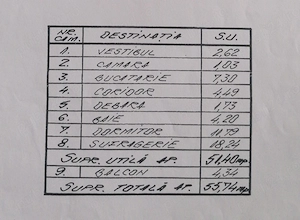 NR. CAM. DESTINAȚIA S.U.
1. VESTIBUL 2,62
2. CAMARA 1,03
3. BUCATARIE 7,30
4. CORIDOR 4,49
5. DEBARA 1,73
6. BAIE 4,20
7. DORMITOR 11,79
8. SUFRAGERIE 18,24
SUPR. UTILĂ AP. 51,40 mp
9. BALCON 4,34
SUPR. TOTALĂ AP. 55,74 mp